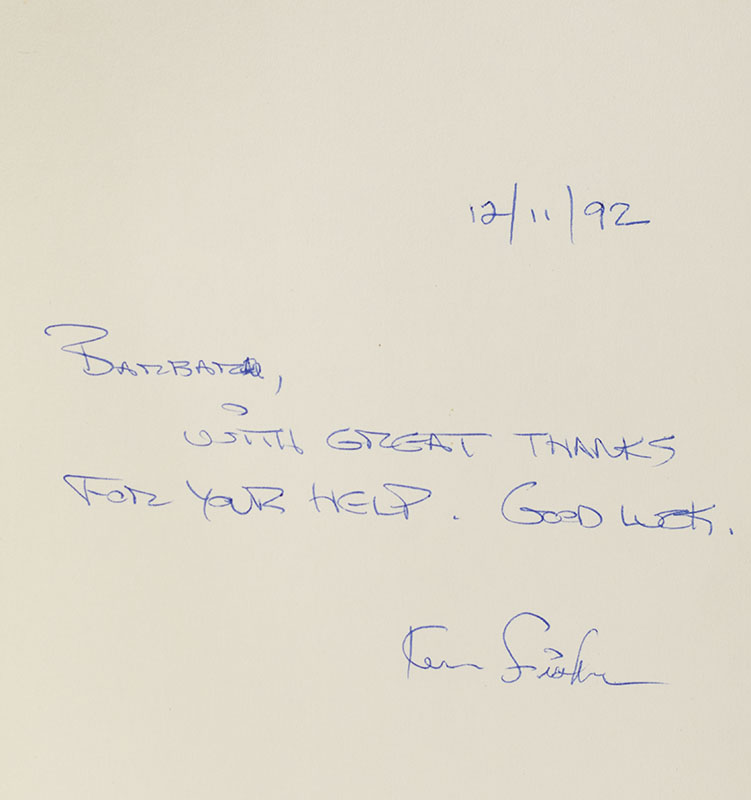 12/11/92
BARBARA,
WITH GREAT THANKS
FOR YOUR HELP. GOOD LUCK.
Ken